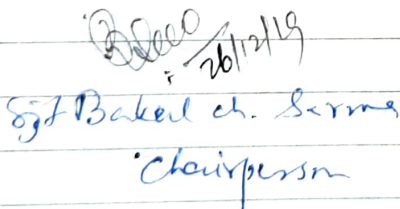 26/12/19
Sjt Bakul ch. Sarma
Chairperson